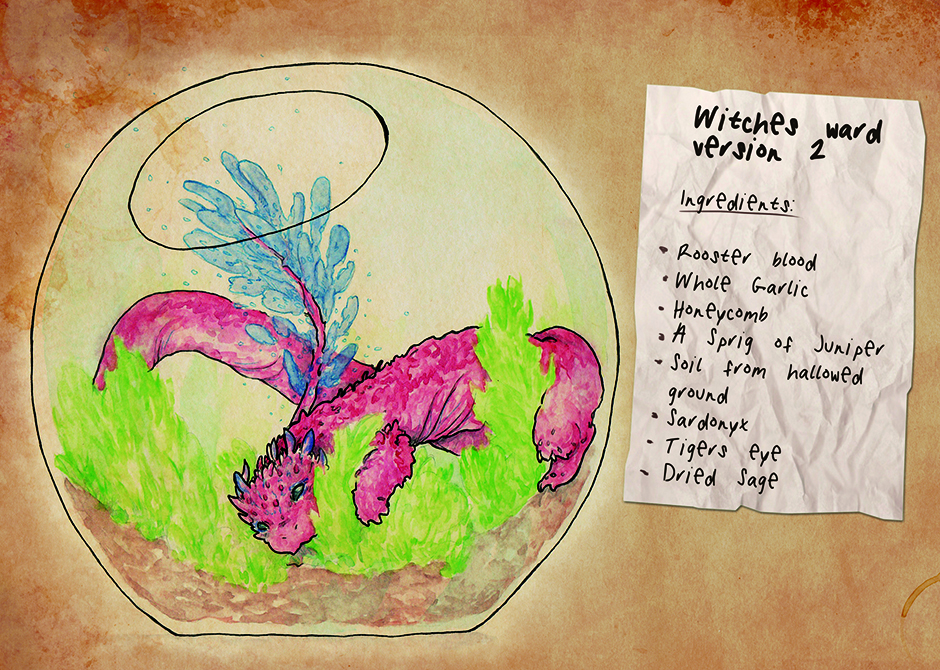 Witches ward
version 2
Ingredients:
• Rooster blood
• Whole Garlic
• Honeycomb
• A Sprig of Juniper
• Soil from hallowed
ground
• Sardonyx
• Tigers eye
• Dried Sage